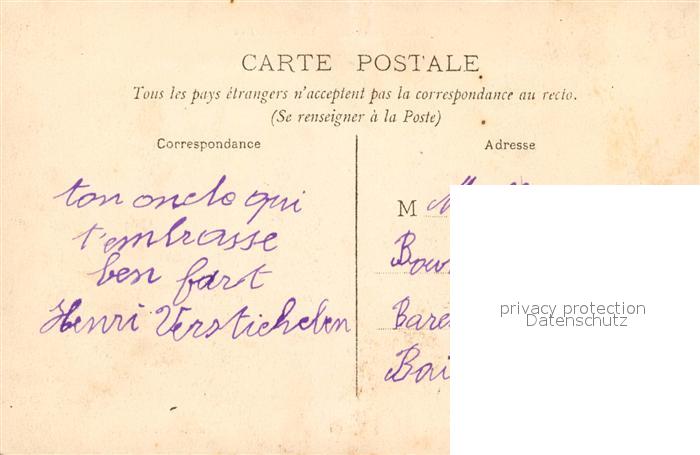 CARTE POSTALE
Tous les pays étrangers n'acceptent pas la correspondance au recto.
(Se renseigner à la Poste)
Correspondance
Adresse
ton oncle qui
t'embrasse
ben fort
Henri Verstichelen
M
privacy protection
Datenschutz